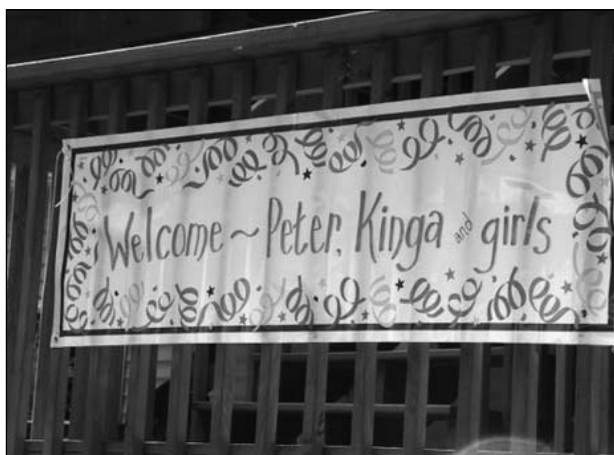 Welcome ~ Peter, Kinga and girls